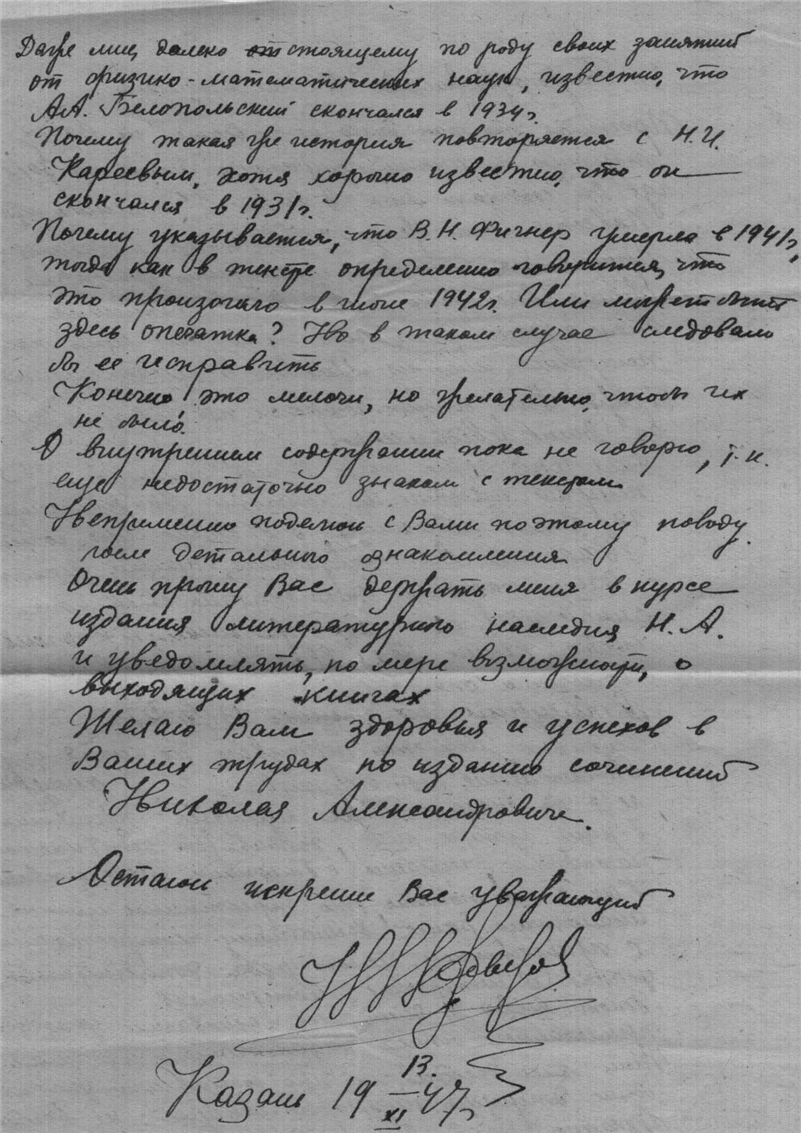 Даже лиц, далеко отстоящему по роду своих занятий
от физико-математических наук, известно, что
А.А. Белопольский скончался в 1934 г.
Почему такая же история повторяется с Н.И.
Кареевым, хотя хорошо известно, что он
скончался в 1931 г.
Почему указывается, что В.Н. Фигнер умерла в 1941 г,
тогда как в тексте определенно говорится, что
это произошло в июне 1942 г. Или может быть
здесь опечатка? Но в таком случае следовало
бы ее исправить
Конечно это мелочи, но желательно, чтобы их
не было.
О внутреннем содержании пока не говорю, т.к.
еще недостаточно знаком с текстом
Непременно поделюсь с Вами по этому поводу
после детального ознакомления
Очень прошу Вас держать меня в курсе
издания литературного наследия Н.А.
и уведомлять, по мере возможности, о
выходящих книгах
Желаю Вам здоровья и успехов в
Ваших трудах по изданию сочинений
Николая Александровича.
Остаюсь искренне Вас уважающий
Казань 19 13. XI 47 г